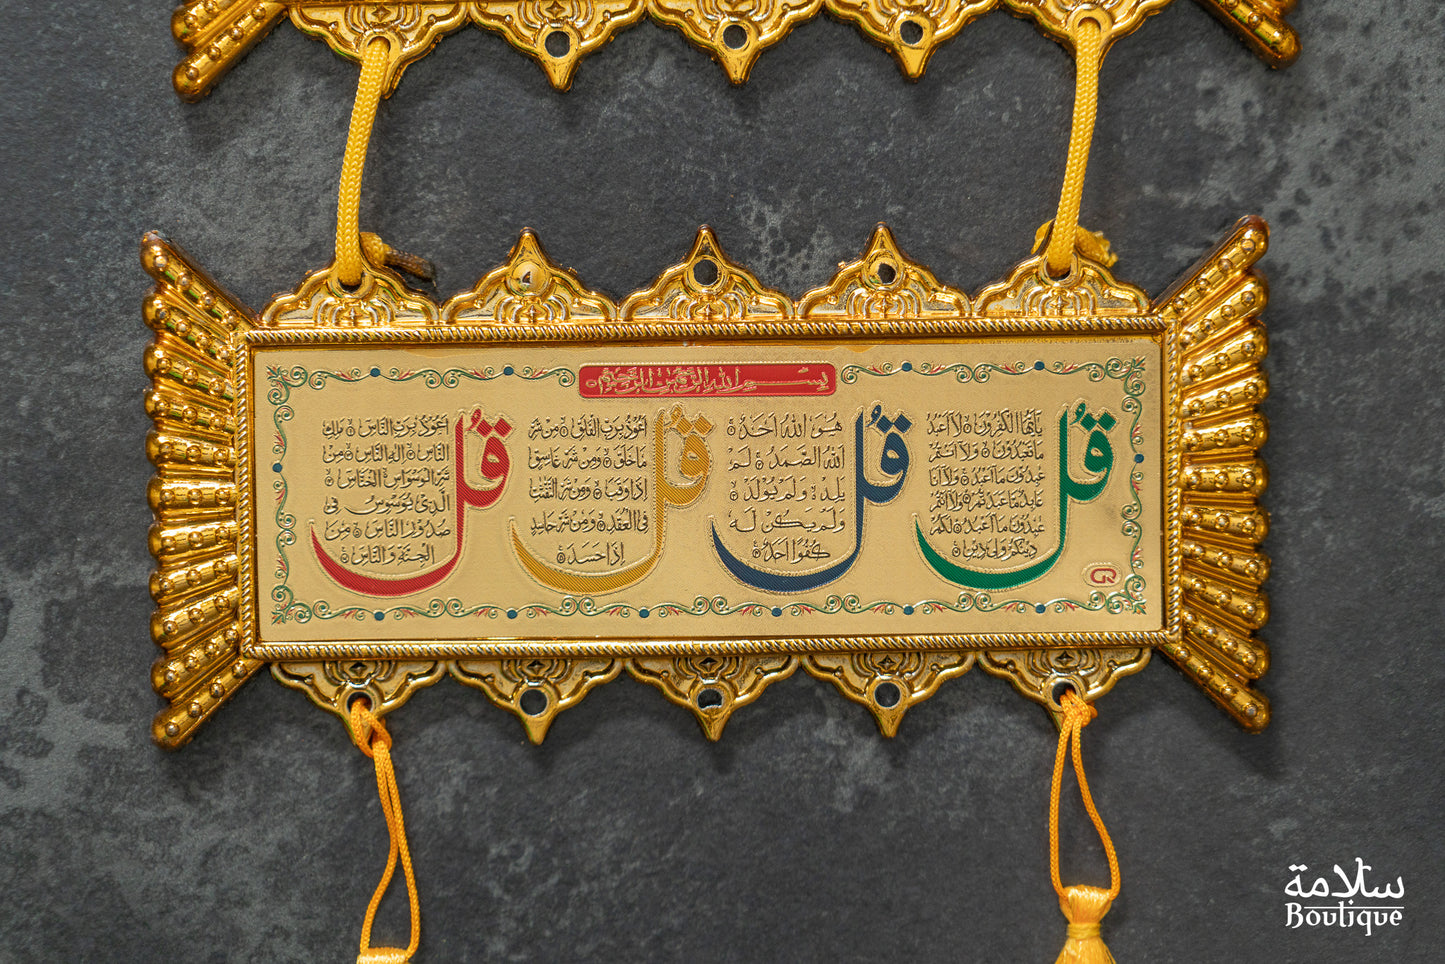 بسم الله الرحمن الرحيم
قُل
يَا أَيُّهَا الْكَافِرُونَ ۞ لَا أَعْبُدُ
مَا تَعْبُدُونَ ۞ وَلَا أَنْتُمْ
عَابِدُونَ مَا أَعْبُدُ ۞ وَلَا أَنَا
عَابِدٌ مَا عَبَدْتُمْ ۞ وَلَا أَنْتُمْ
عَابِدُونَ مَا أَعْبُدُ ۞ لَكُمْ
دِينُكُمْ وَلِيَ دِينِ ۞
قُل
هُوَ اللهُ أَحَدٌ ۞
اللهُ الصَّمَدُ ۞ لَمْ
يَلِدْ ۞ وَلَمْ يُولَدْ ۞
وَلَمْ يَكُنْ لَهُ
كُفُوًا أَحَدٌ ۞
قُل
أَعُوذُ بِرَبِّ الْفَلَقِ ۞ مِنْ شَرِّ
مَا خَلَقَ ۞ وَمِنْ شَرِّ غَاسِقٍ
إِذَا وَقَبَ ۞ وَمِنْ شَرِّ النَّفَّاثَاتِ
فِي الْعُقَدِ ۞ وَمِنْ شَرِّ حَاسِدٍ
إِذَا حَسَدَ ۞
قُل
أَعُوذُ بِرَبِّ النَّاسِ ۞ مَلِكِ
النَّاسِ ۞ إِلَهِ النَّاسِ ۞ مِنْ
شَرِّ الْوَسْوَاسِ الْخَنَّاسِ ۞
الَّذِي يُوَسْوِسُ فِي
صُدُورِ النَّاسِ ۞ مِنَ
الْجِنَّةِ وَالنَّاسِ ۞
GR
سلامة
Boutique